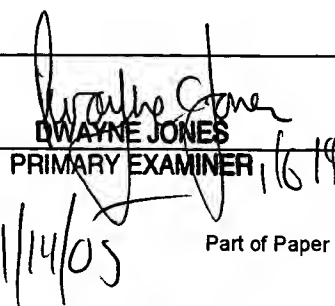 Dwayne Jones
DWAYNE JONES
PRIMARY EXAMINER, 1619
1/14/05
Part of Paper